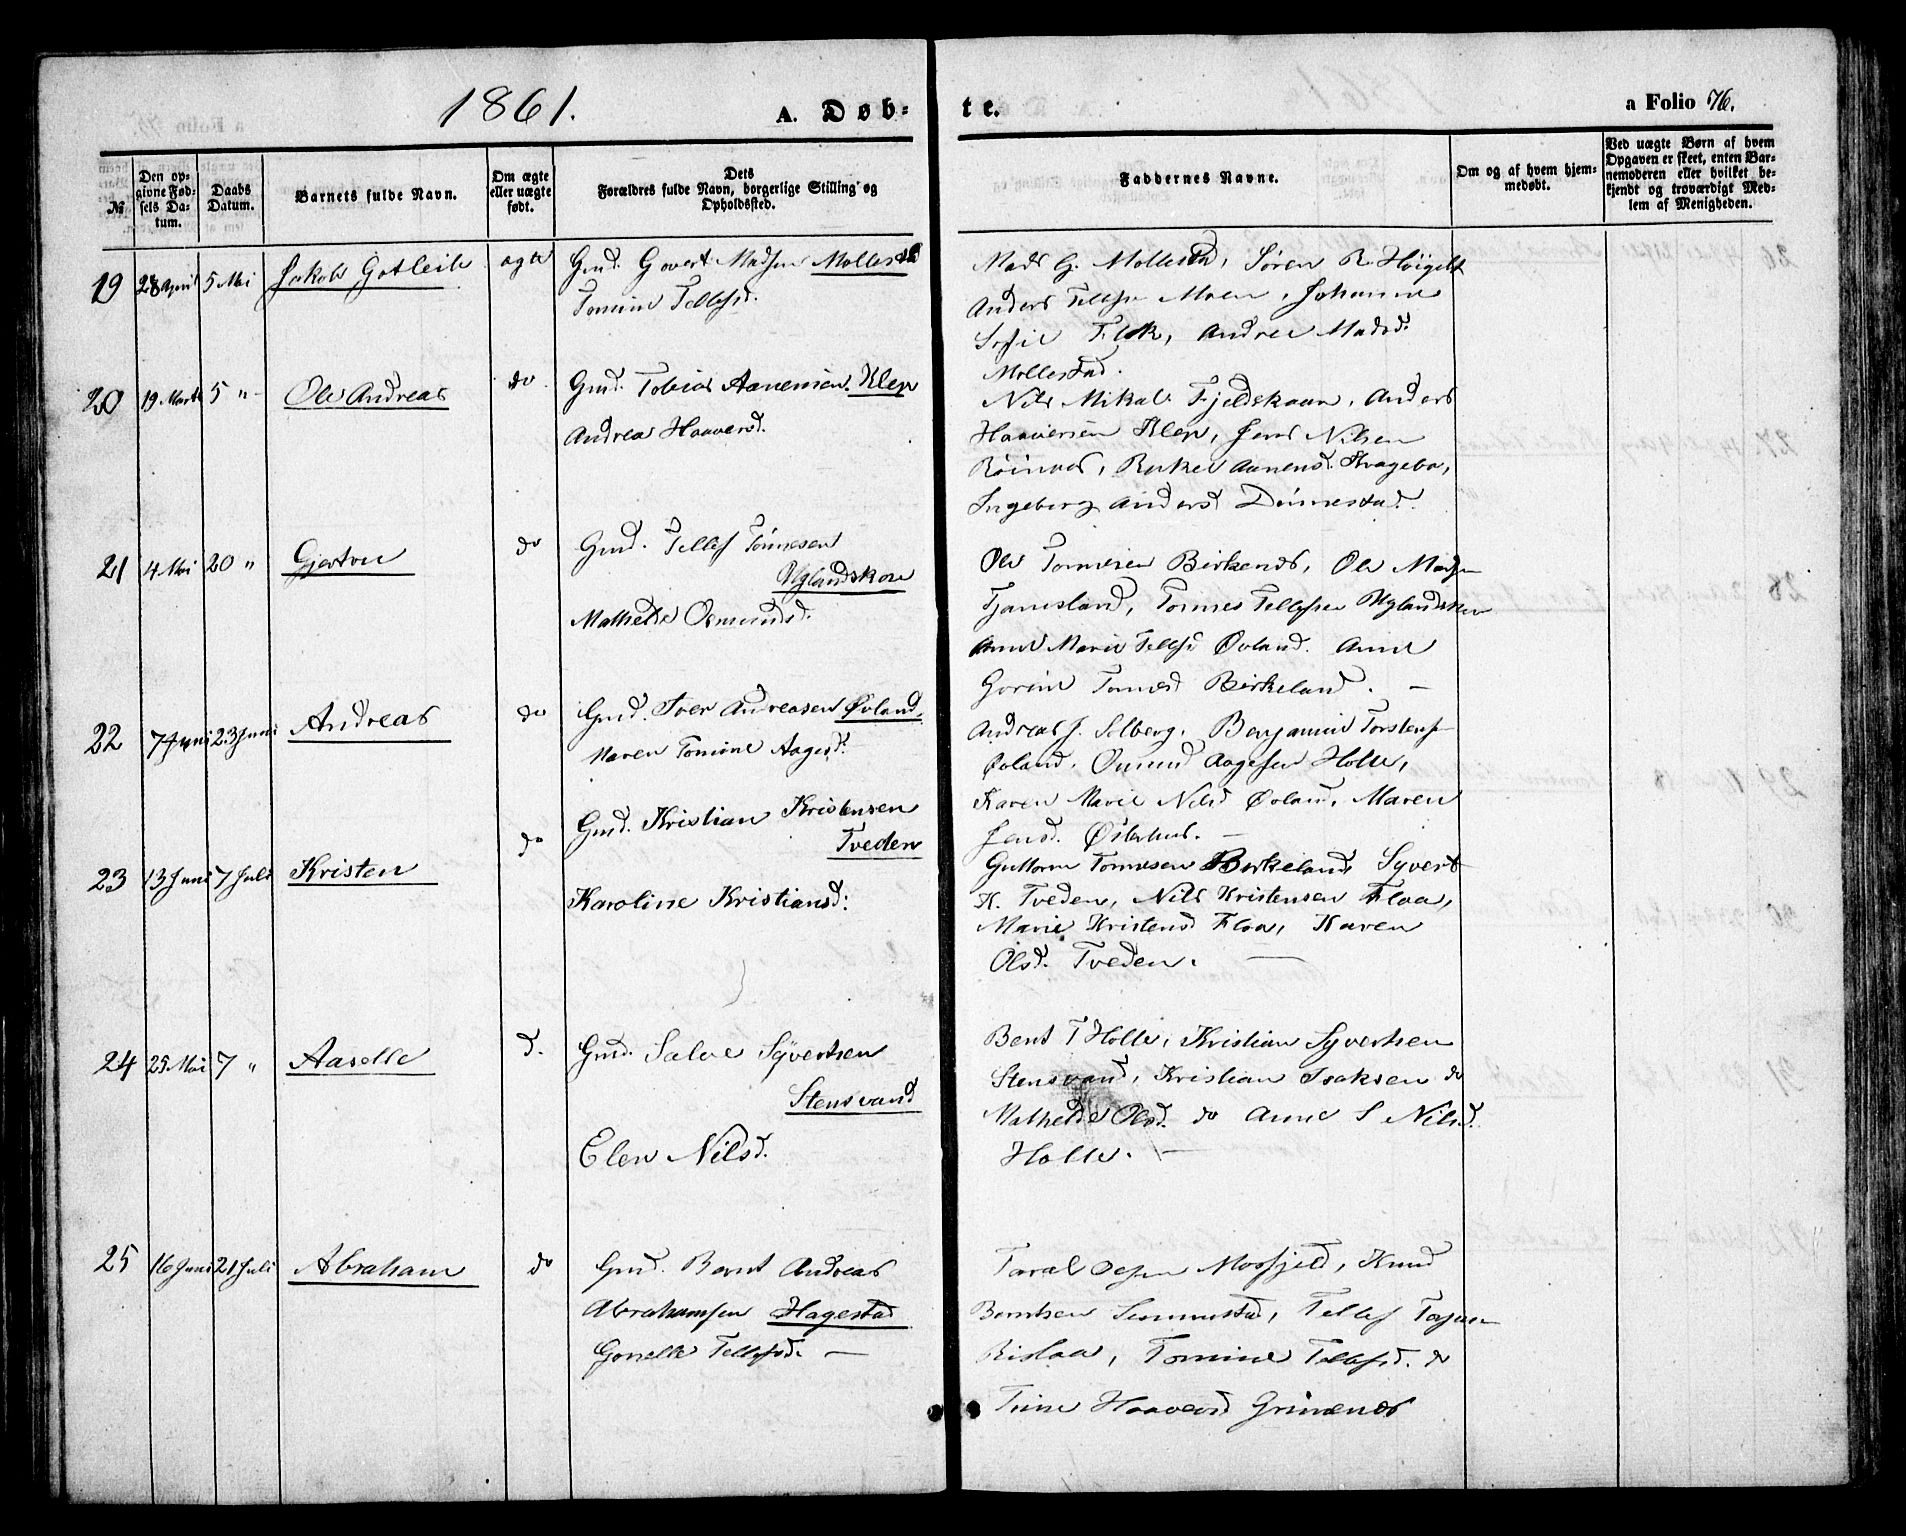 1861.
A. Døb-
te.
a Folio 76.
№
Den op-
givne Fød-
sels Da-
tum.
Daabs
Datum.
Barnets fulde Navn.
Om ægte
eller uægte
født.
Dets
Forældres fulde Navn, borgerlige Stilling og
Opholdssted.
Faddernes Navne.
Om og af hvem hjem-
medøbt.
Ved uægte Børn af hvem
Opgaven er skeet, enten Bar-
nemoderen eller hvilket be-
kjendt og troværdigt Med-
lem af Menigheden.
19 28 April 5 Mai Jakob Gotleib ægte Gmd. Govert Madsen Mollestd
Tomine Tellefsd.
Mads G. Mollestad, Søren R. Höigilt
Anders Tellefsen Moen, Johanne
Sofie Flak, Andrea Madsd.
Mollestad.
20 19 Marts 5 " Ole Andreas do Gmd. Tobias Aanensen Klep
Andrea Haaversd.
Nils Mikal Fjeldskaar, Anders
Haaversen Klep, Jens Nilsen
Röinaas, Aanensd. Kragebo,
Ingeborg Andersd Dönnestad.
21 4 Mai 20 " Gjertru do Gmd. Tellef Tönnesen
Uglandskon
Mathilde Osmundsd.
Ole Tonnesen Birkenes, Ole Madsen
Tjamsland, Tonnes Tellefsen Uglandskon
Anne Marie Tellefsd Øvland. Anne
Gorine Tonnesd Birkeland. —
22 7 Juni 23 Juni Andreas do Gmd. Iver Andreasen Øvland
Maren Tomine Aagesd.
Andreas J. Solberg, Benjamin Torstens
Øvland, Omund Aagesen Holte,
Karen Marie Nilsd Øvland, Maren
Jensd. Østerhus. —
23 13 Juni 7 Juli Kristen do Gmd. Kristian Kristensen
Tveden
Karoline Kristiansd:
Guttorm Tonnesen Birkeland, Syvert
K. Tveden, Nils Kristensen Floa,
Marie Kristensd Floa, Karen
Olsd. Tveden. —
24 25 Mai 7 " Aaselle d. Gmd. Salve Syvertsen
Stensvand
Elen Nilsd.
Bent T Holte, Kristian Syvertsen
Stensvand, Kristian Isaksen do
Mathilde Olsd. do Anne S Nilsd.
Holte. —
25 16 Juni 21 Juli Abraham do Gmd. Bernt Andreas
Abrahamsen Hagestad
Gonelle Tellefsd. —
Taral Mosfjeld, Knud
Berntsen Senumstad, Tellef
Rislaa, Tomine Tellefsd. do
Tine Haaversd Grimenes